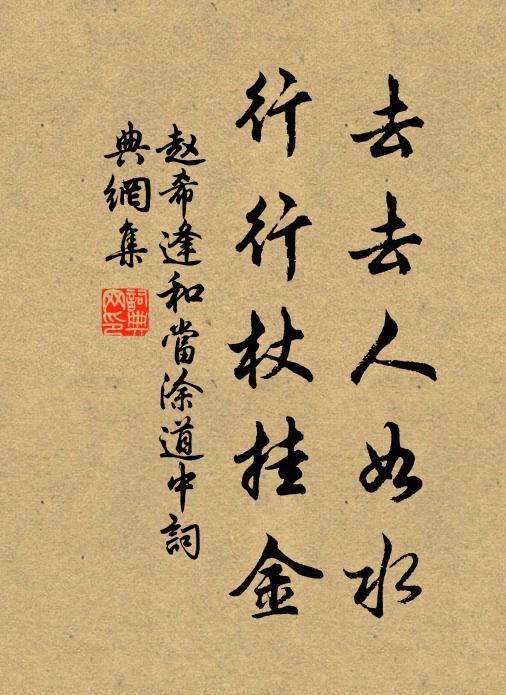 去去人如水
行行杖挂金
赵希逢和當涂道中詞
典網集
詞典
网印